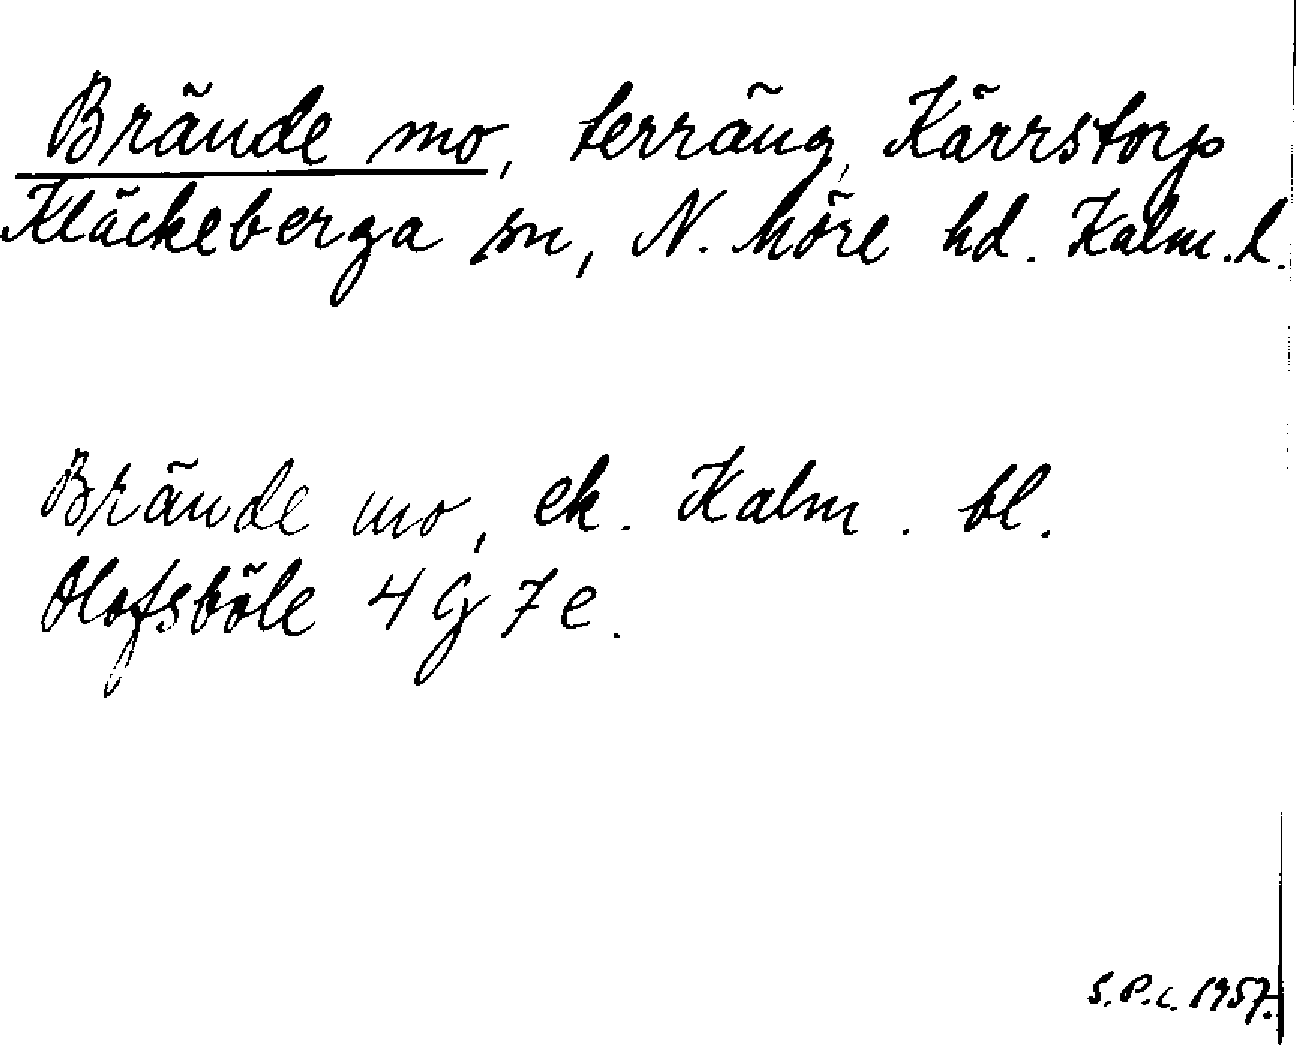 Brände mo, terräng, Kärrstorp
Kläckeberga sn, N. Möre hd. Kalm. l.
Brände mo, ek. Kalm. bl.
Olofsböle 4 G 7 e.
S.P.c. 1957.